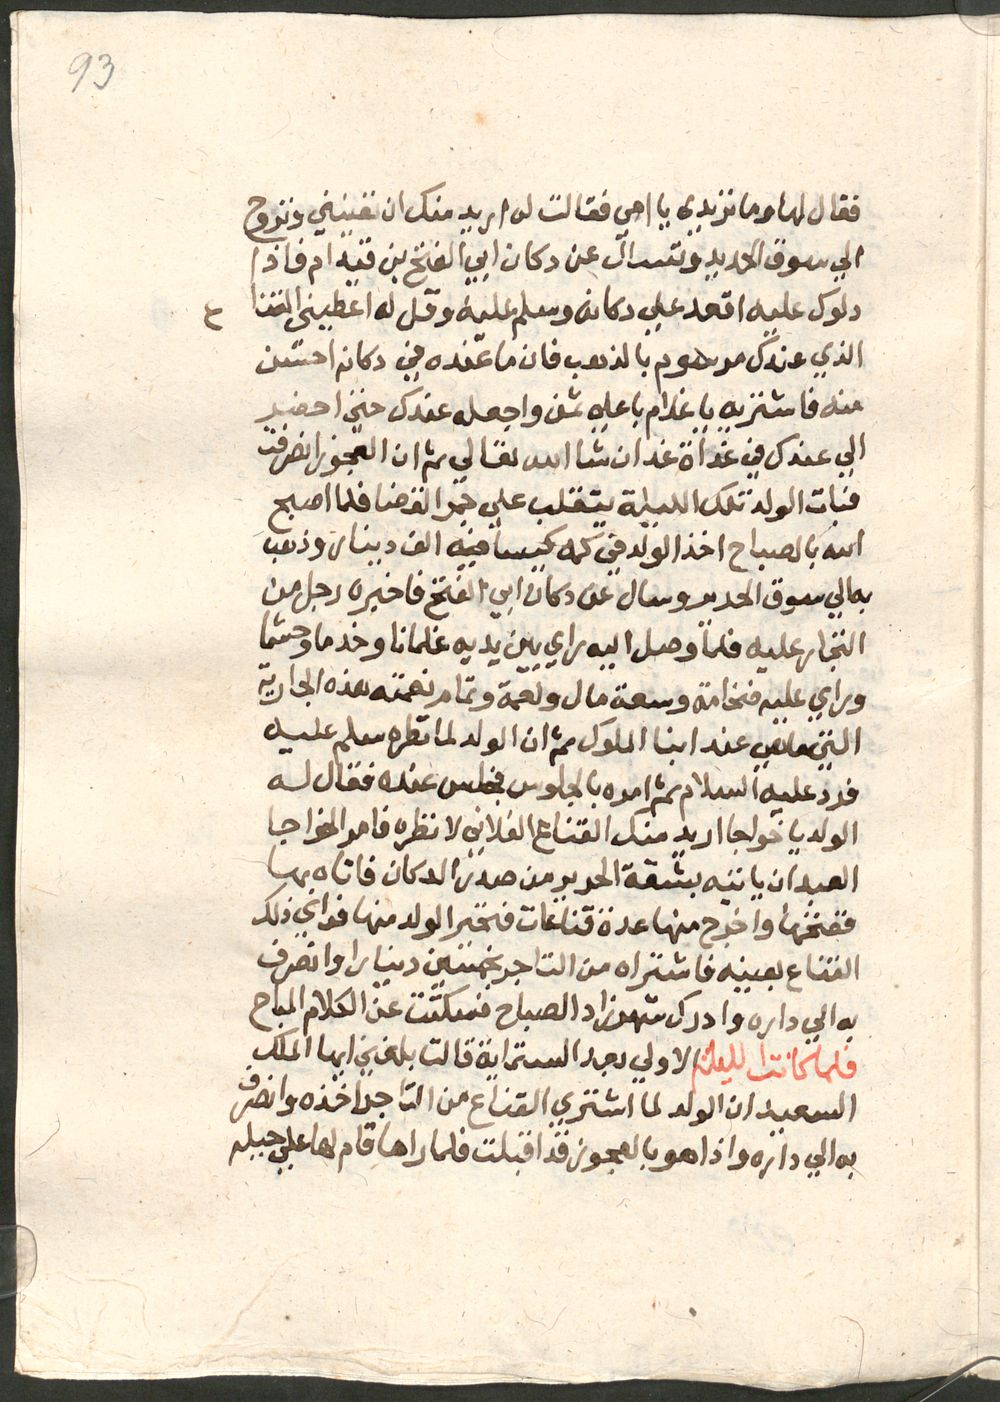 93
فقال لها وما تريدي يا امي فقالت له اريد منك ان تغيثني وتروح
الي سوق الحرير وتسال عن دكان ابي الفتح بن قيدام فاذا
دلوك عليه اقعد علي دكانه وسلم عليه وقل له اعطيني القناع
الذي عندك مرسوم بالذهب فان ما عنده في دكانه احسن
منه فاشتريه يا غلام باغلي ثمن واجعله عندك حتي احضر
الي عندك في غداة غد ان شا الله تعالي ثم ان العجوز انصرفت
فبات الولد تلك الليلة يتقلب علي جمر الغضا فلما اصبح
الله بالصباح اخذ الولد في كمه كيسا فيه الف دينار وذهب
به الي سوق الحرير وسال عن دكان ابي الفتح فاخبره رجل من
التجار عليه فلما وصل اليه راي بين يديه غلمانا وخدما وحشما
وراي عليه فخامة وسعة مال ونعمة وتمام نعمته هذه الجارية
التي ما هي عند ابنا الملوك ثم ان الولد لما نظره سلم عليه
فرد عليه السلام ثم امره بالجلوس فجلس عنده فقال له
الولد يا خواجا اريد منك القناع الفلاني لانظره فامر الخواجا
العبد ان ياتيه بشقة الحرير من صدر الدكان فاتاه بها
ففتحها واخرج منها عدة قناعات فتحير الولد منها فراي ذلك
القناع بعينه فاشتراه من التاجر بخمسين دينارا وانصرف
به الي داره وادرك شهرزاد الصباح فسكتت عن الكلام المباح
فلما كانت الليلة الاولي بعد الستماية قالت بلغني ايها الملك
السعيد ان الولد لما اشتري القناع من التاجر اخذه وانصرف
به الي داره واذا هو بالعجوز قد اقبلت فلما راها قام لها علي حيله